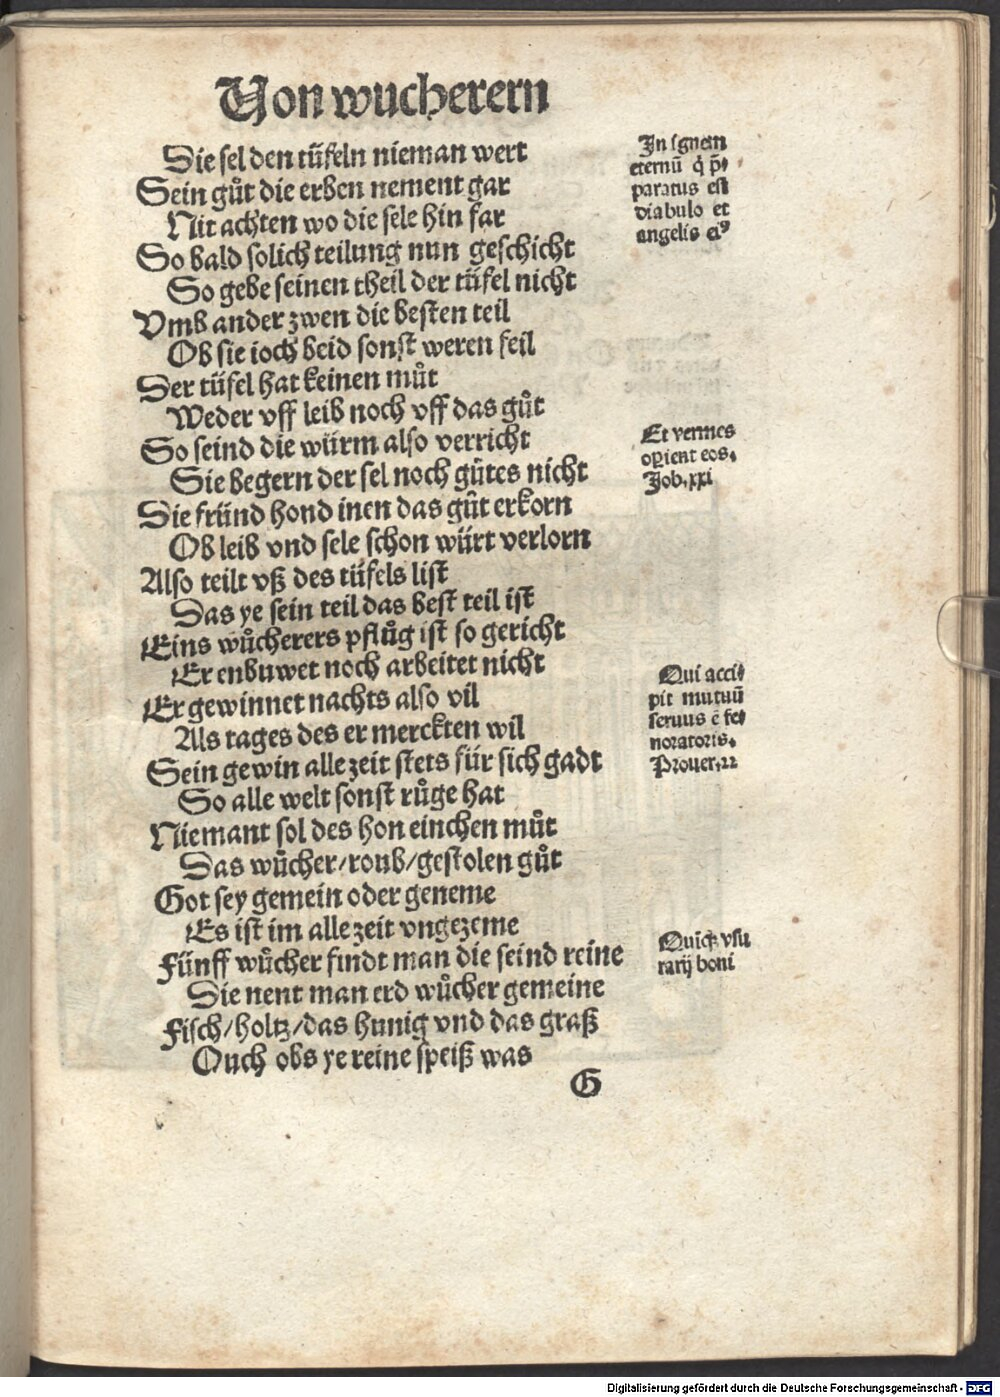 Von wucherern
Die sel den tüfeln nieman wert
Sein gůt die erben nement gar
Nit achten wo die sele hin far
So bald solich teilung nun geschicht
So gebe seinen theil der tüfel nicht
Vmb ander zwen die besten teil
Ob sie ioch beid sonst weren feil
Der tüfel hat keinen můt
Weder vff leib noch vff das gůt
So seind die würm also verricht
Sie begern der sel noch gůtes nicht
Die fründ hond inen das gůt erkorn
Ob leib vnd sele schon würt verlorn
Also teilt vß des tüfels list
Das ye sein teil das best teil ist
Eins wůcherers pflůg ist so gericht
Er enbuwet noch arbeitet nicht
Er gewinnet nachts also vil
Als tages des er merckten wil
Sein gewin alle zeit stets für sich gadt
So alle welt sonst růge hat
Niemant sol des hon einchen můt
Das wůcher/roub/gestolen gůt
Got sey gemein oder geneme
Es ist im alle zeit vngezeme
Fünff wůcher findt man die seind reine
Die nent man erd wůcher gemeine
Fisch/holtz/das hunig vnd das graß
Ouch obs ye reine speiß was
G
In ignem
eternū q̄ p̄-
paratus est
diabulo et
angelis eiꝰ
Et vermes
oꝑient eos.
Job.xxi
Qui acci-
pit mutuū
seruus ē fe-
noratoris.
Prouer.22
Quicꝗ vsu
rarij boni
Digitalisierung gefördert durch die Deutsche Forschungsgemeinschaft - DFG